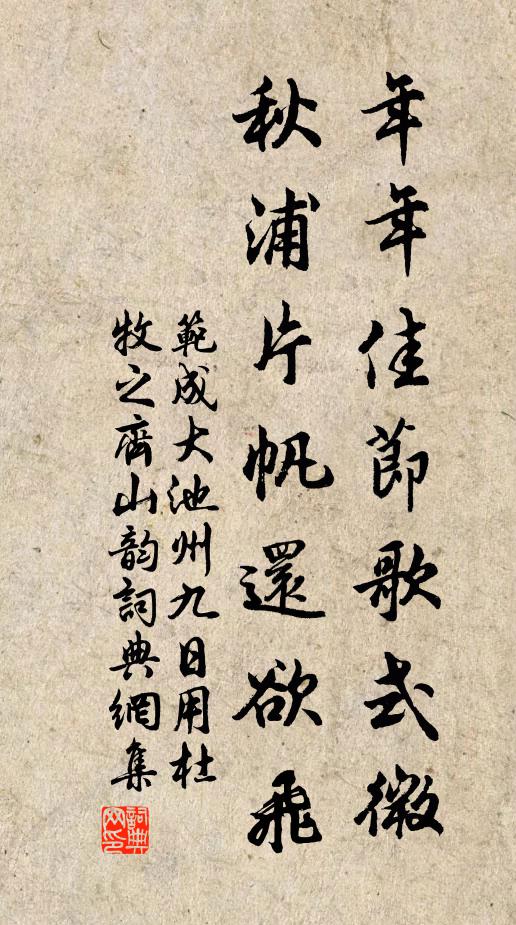 年年佳節歌式微
秋浦片帆還欲飛
範成大池州九日用杜
牧之齊山韵詞典網集
詞典網印